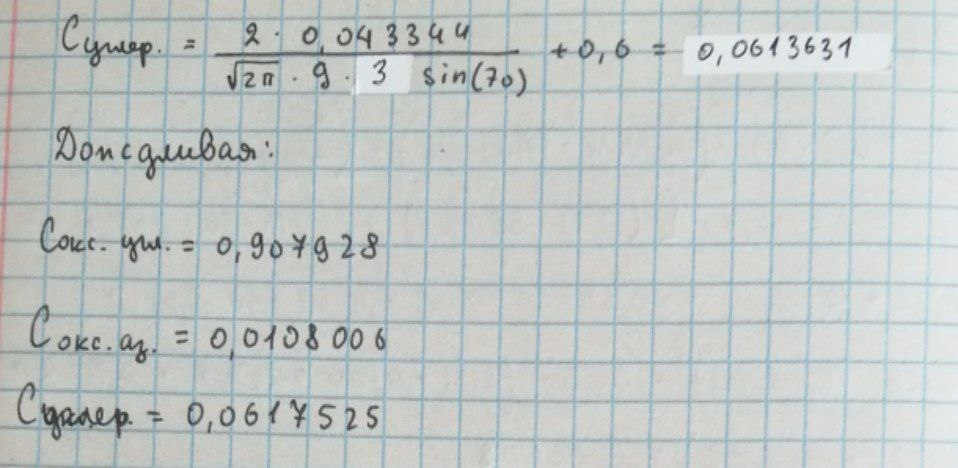 Суглер. = 2 · 0,0433444 / √2π · 9 · 3 sin(70) + 0,6 = 0,0613631
Дождливая:
Cокс. угл. = 0,907928
Cокс. аз. = 0,0108006
= 0,0617525